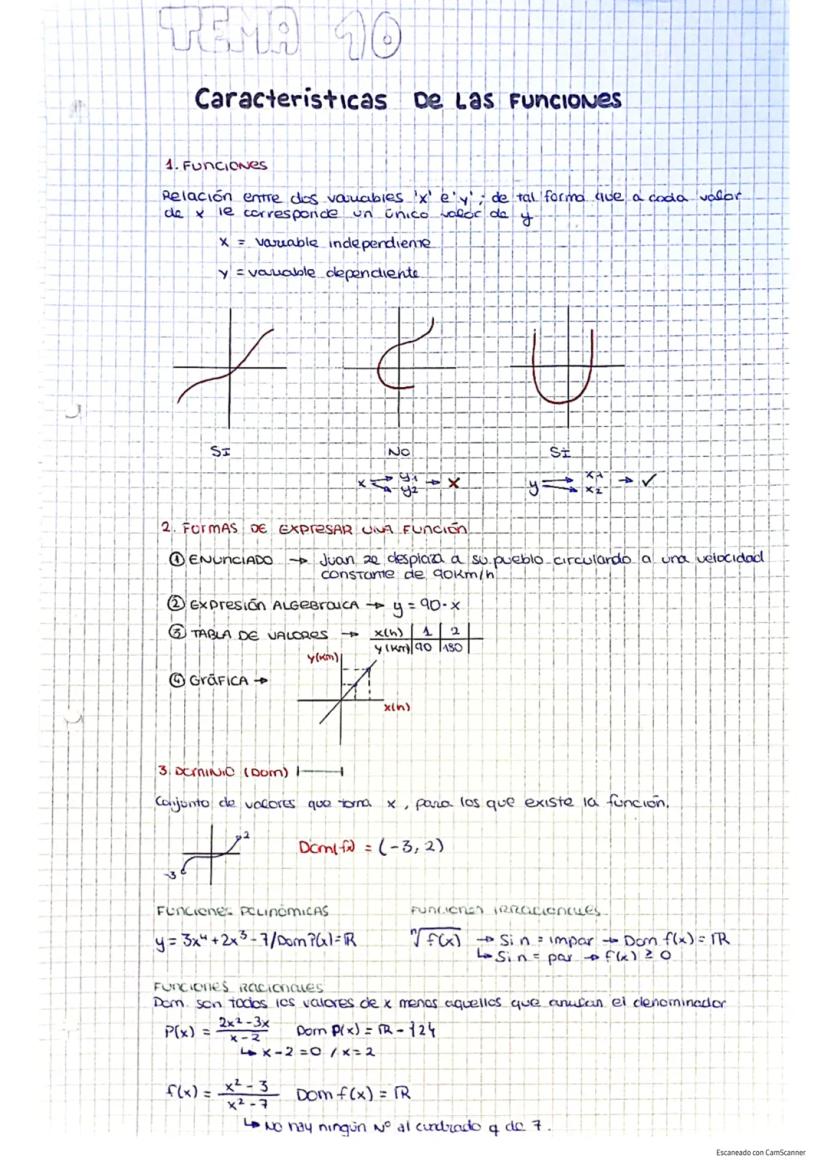 TEMA 10
Características De Las Funciones
1. Funciones
Relación entre dos variables 'x' e 'y'; de tal forma que a cada valor
de x le corresponde un único valor de y
x = variable independiente
y = variable dependiente
SI NO SI
x y1 y2 → X y x1 x2 → ✓
2. Formas de expresar una función
① ENUNCIADO → Juan se desplaza a su pueblo circulando a una velocidad
constante de 90Km/h
② Expresión Algebraica → y = 90·x
③ TABLA DE VALORES → x(h) | 1 | 2
y(Km) | 90 | 180
y(Km)
④ Gráfica →
x(h)
3. Dominio (Dom)
Conjunto de valores que toma x, para los que existe la función.
2
Dom f(x) = (-3, 2)
-3
Funciones Polinómicas Funciones irracionales
y = 3x⁴ + 2x³ - 7 / Dom P(x) = ℝ ⁿ√f(x) → Si n = impar → Dom f(x) = ℝ
↳ Si n = par → f(x) ≥ 0
Funciones Racionales
Dom. son todos los valores de x menos aquellos que anulan el denominador
P(x) = 2x² - 3x / x - 2 Dom P(x) = ℝ - {2}
↳ x - 2 = 0 / x = 2
f(x) = x² - 3 / x² - 7 Dom f(x) = ℝ
↳ No hay ningún Nº al cuadrado q de 7.
Escaneado con CamScanner